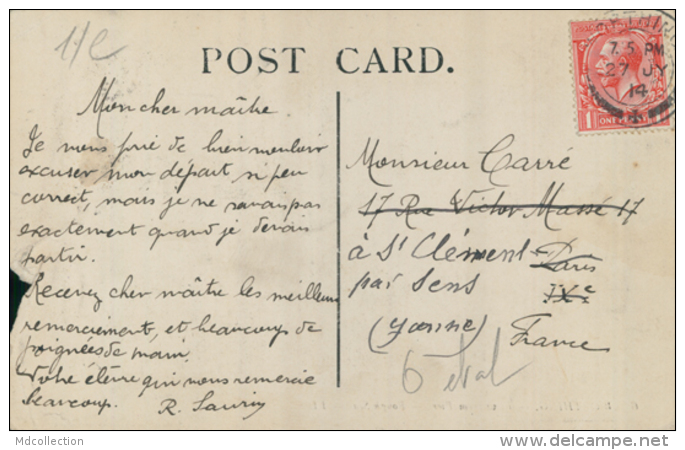 1/C
POST CARD.
Mon cher maître.
Je vous prie de bien vouloir
excuser mon départ si peu
correct, mais je ne savais pas
exactement quand je devais
partir.
Recevez cher maître les meilleurs
remerciements, et beaucoup de
poignées de main.
Votre élève qui vous remercie
beaucoup.
7.5 PM
27 JY
14
1
Monsieur Carré
17 Rue Victor Massé 17
à St Clément
Paris
par Sens
IXe
(Yonne)
France
6 
Mdcollection
www.delcampe.net